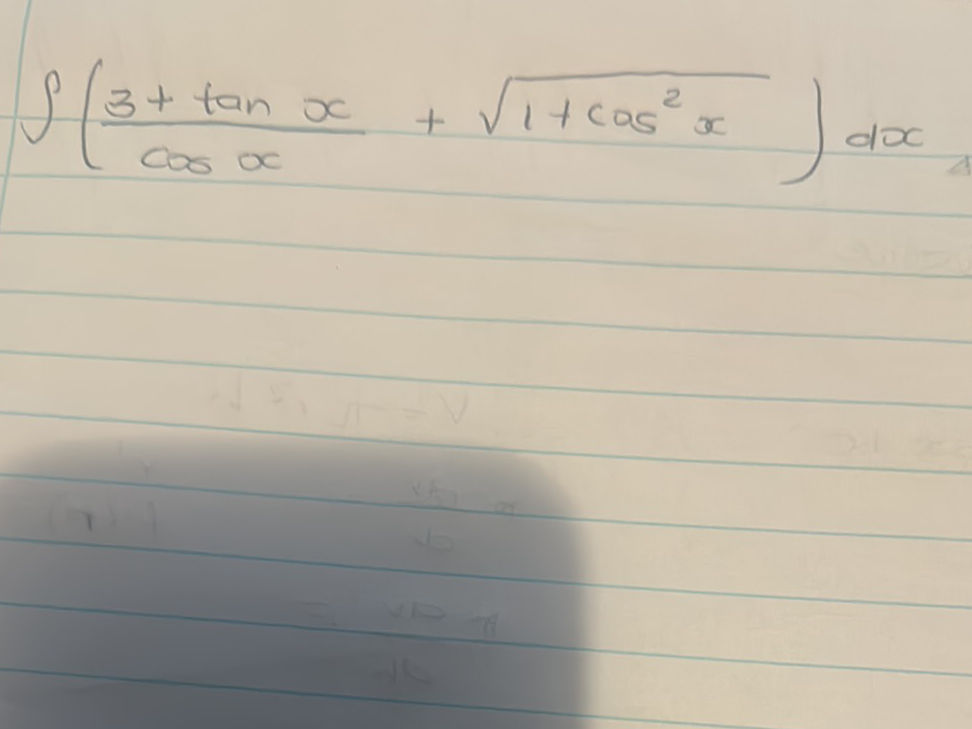 ∫ ( (3 + tan x)/(cos x) + √(1 + cos² x) ) dx